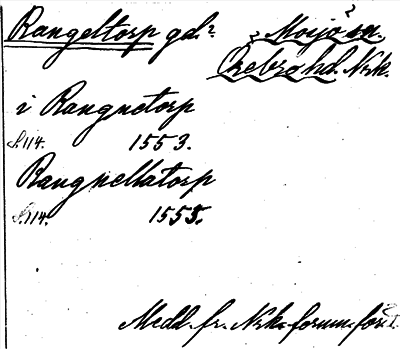 Rangeltorp gd? ? Mosjö ? sn.
Örebro hd. Nrk.
i Rangnetorp
S. 114. 1553.
Rangnellatorp
S. 114. 1555.
Medd. fr. Nrk. fornm. för. I.